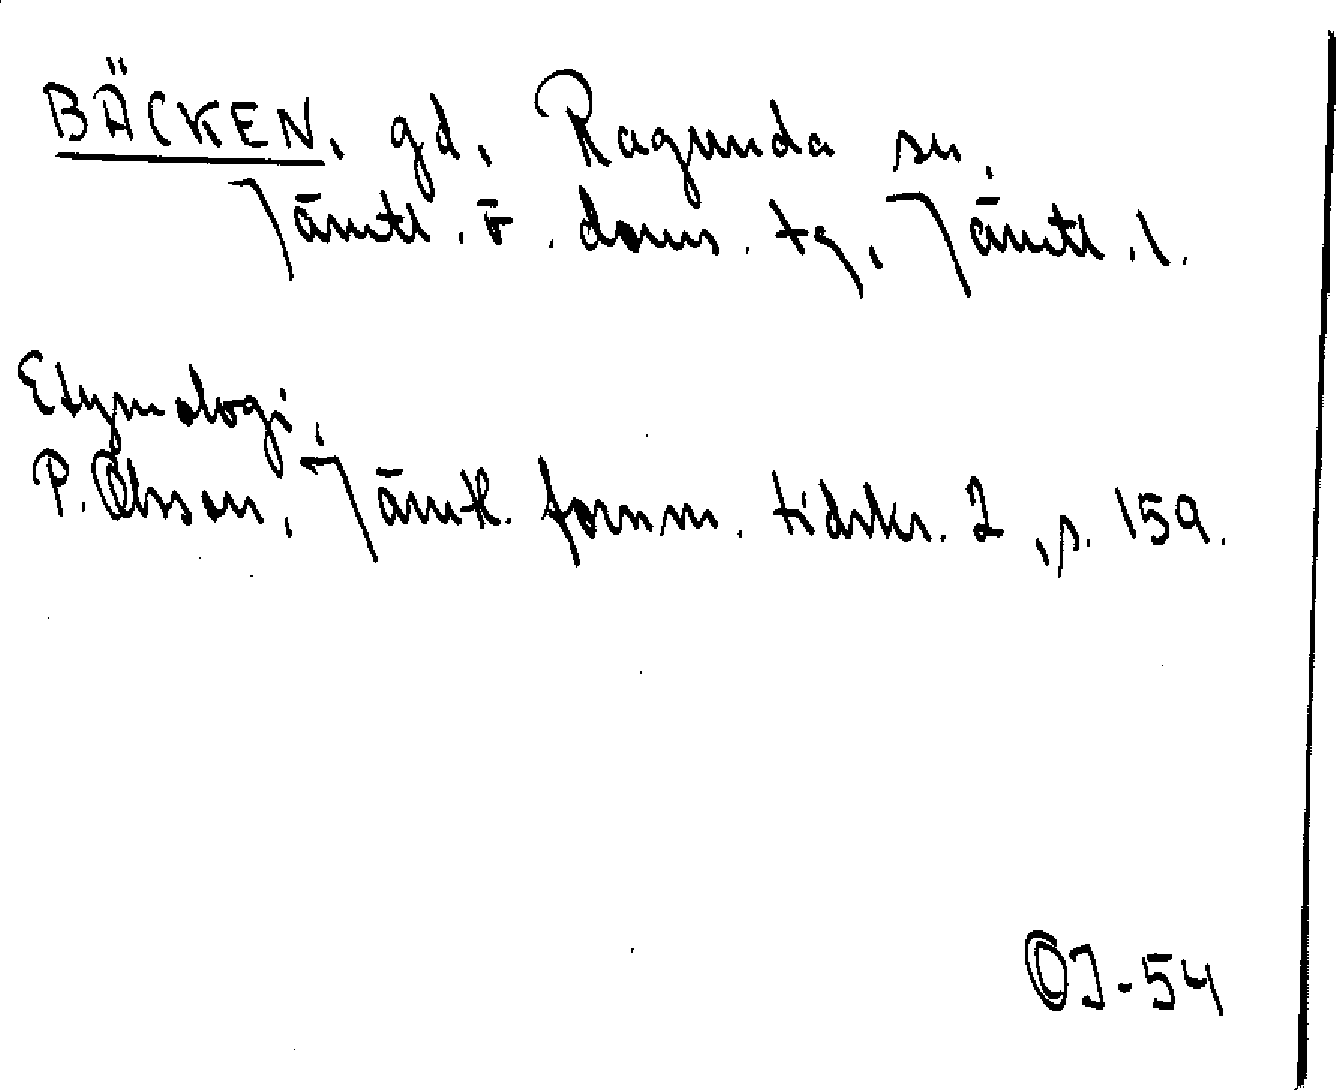 BÄCKEN, gd, Ragunda sn,
Jämtl. ö. doms. tg, Jämtl. l.
Etymologi,
P. Olsson, Jämtl. fornm. tidskr. 2, s. 159.
OJ-54